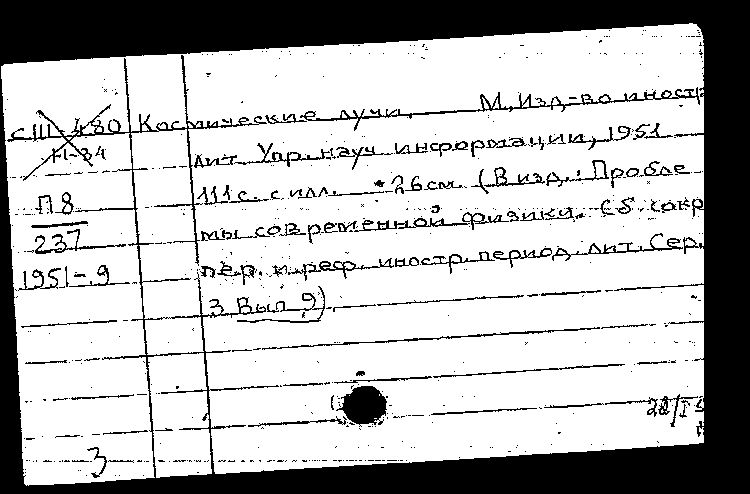 СШ-480
Н-34
П8
237
1951-9
Космические лучи. М, Изд-во иностр
лит. Упр. науч информации, 1951
111 с. с илл. 26 см. (В изд.: Пробле
мы современной физики. Сб. сокр
пер. и реф. иностр. период. лит. Сер.
3 Вып 9).
3